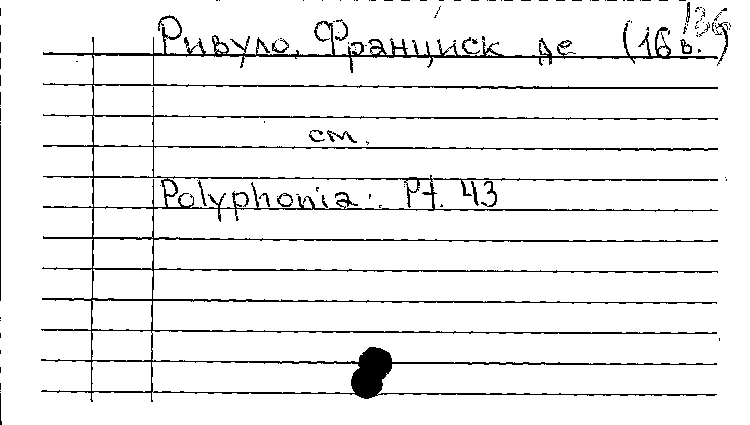 136
Ривуло, Франциск де (16 в.)
см.
Polyphonia: Pt. 43